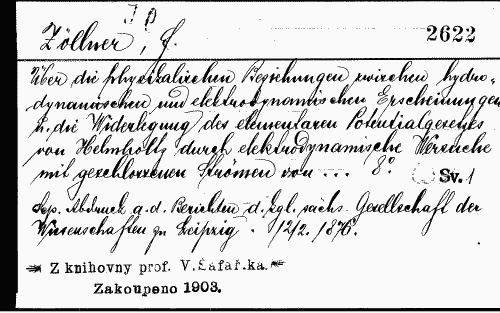 I p
Zöllner, F.
2622
Über die physikalischen Beziehungen zwischen hydro-
dynamischen und elektrodynamischen Erscheinungen
u. die Widerlegung des elementaren Potentialgesetzes
von Helmholtz durch elektrodynamische Versuche
mit geschlossenen Strömen von ... 8°
Sv. 1
Sep. Abdruck a. d. Berichten d. kgl. sächs. Gesellschaft der
Wissenschaften zu Leipzig. 12/2. 1876.
Z knihovny prof. V. Šafař.ka.
Zakoupeno 1903.